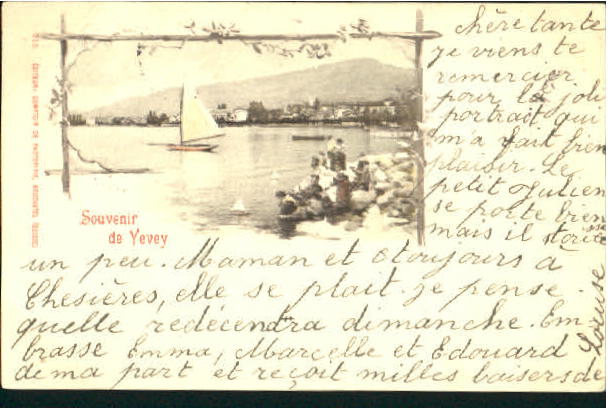 Chère tante
je viens te
remercier
pour le joli
portrait qui
m'a fait bien
plaisir. Le
petit Julien
se porte bien
mais il tousse
un peu. Maman et toujours à
Chesières, elle se plait je pense
quelle redécendra dimanche. Em-
brasse Emma, Marcelle et Edouard
de ma part et reçoit milles baisers de
Louise
Souvenir
de Vevey